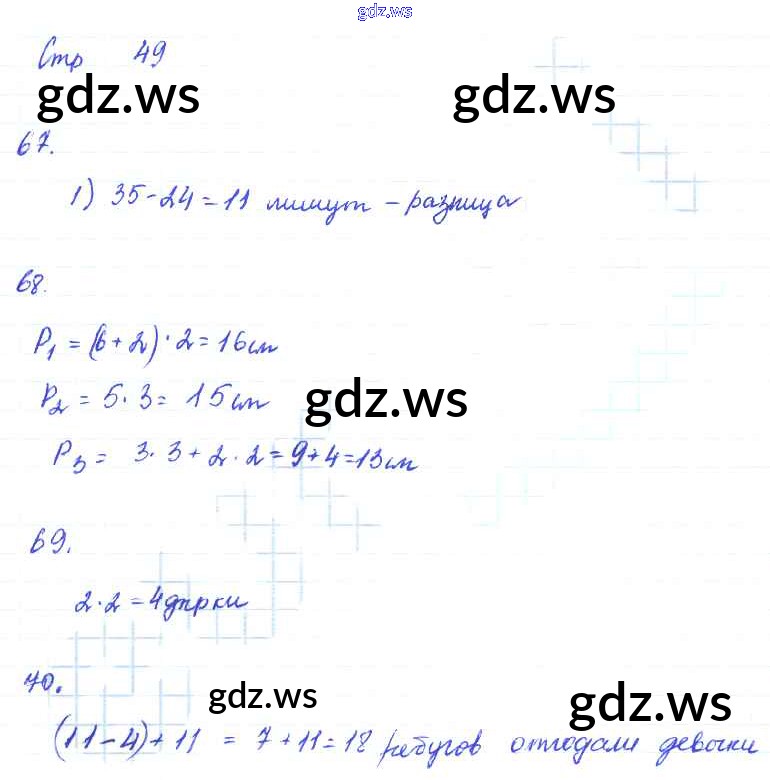 gdz.ws
Стр 49
gdz.ws gdz.ws
67.
1) 35-24=11 минут - разница
68.
P₁ = (6+2)·2=16см
P₂ = 5·3= 15см
gdz.ws
P₃ = 3·3+2·2=9+4=13см
69.
2·2=4дырки
70.
gdz.ws gdz.ws
(11-4)+11 = 7+11=18 ребусов отгадали девочки